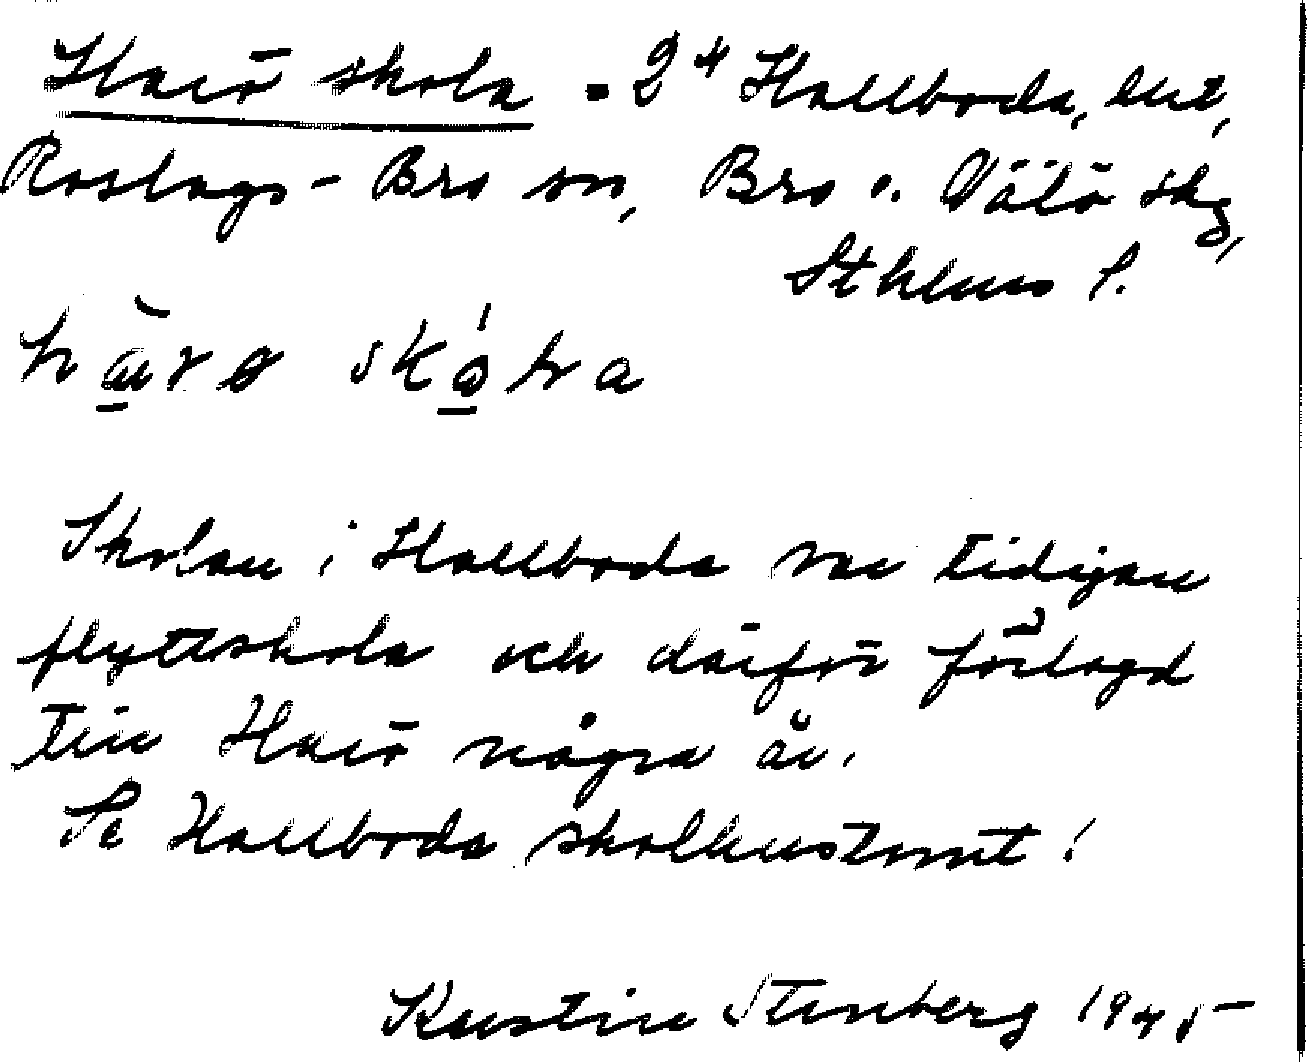 Harö skola - 2⁴ Hallboda, but,
Roslags-Bro sn, Bro o. Välö skg,
Sthlms l.
hä̀rɷ skɷ́ɫa
Skolan i Hallboda var tidigare
flyttskola och därför förlagd
till Harö några år.
Se Hallboda skolhustomt!
Kerstin Stenberg 1945